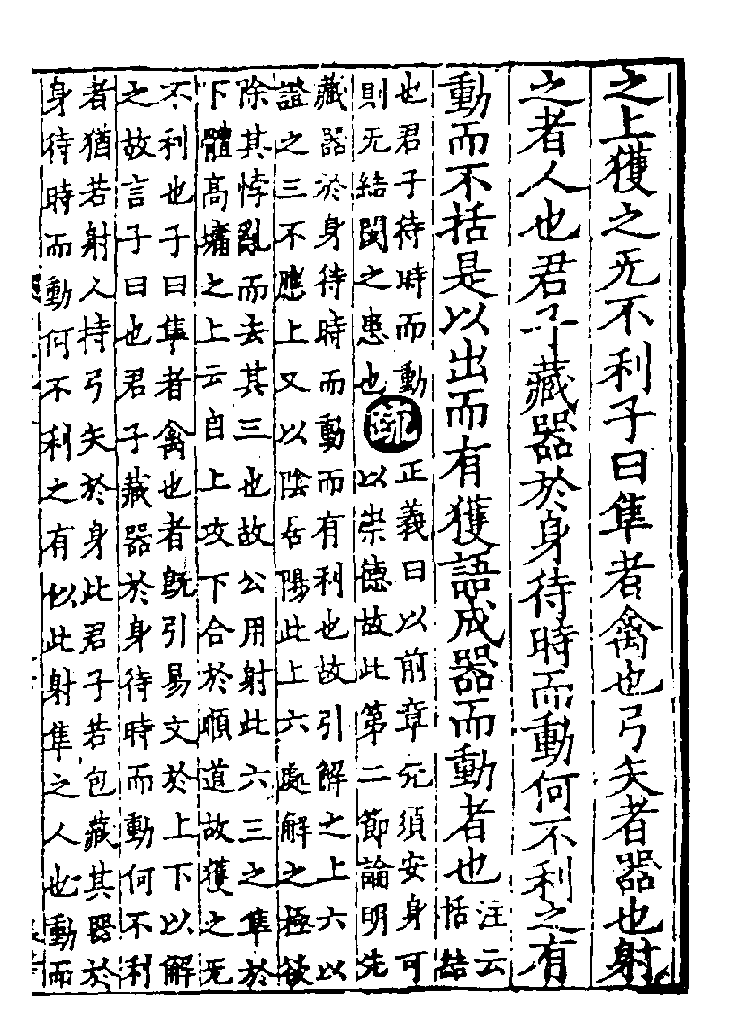 之上獲之无不利子曰隼者禽也弓矢者器也射
之者人也君子藏器於身待時而動何不利之有
動而不括是以出而有獲語成器而動者也
注云
括結
也君子待時而動
則无結閡之患也
疏
正義曰以前章先須安身可
以崇德故此第二節論明先
藏器於身待時而動而有利也故引解之上六以
證之三不應上又以陰居陽此上六處解之極欲
除其悖亂而去其三也故公用射此六三之隼於
下體高墉之上云自上攻下合於順道故獲之无
不利也子曰隼者禽也者旣引易文於上下以解
之故言子曰也君子藏器於身待時而動何不利
者猶若射人持弓矢於身此君子若包藏其器於
身待時而動何不利之有似此射隼之人也動而